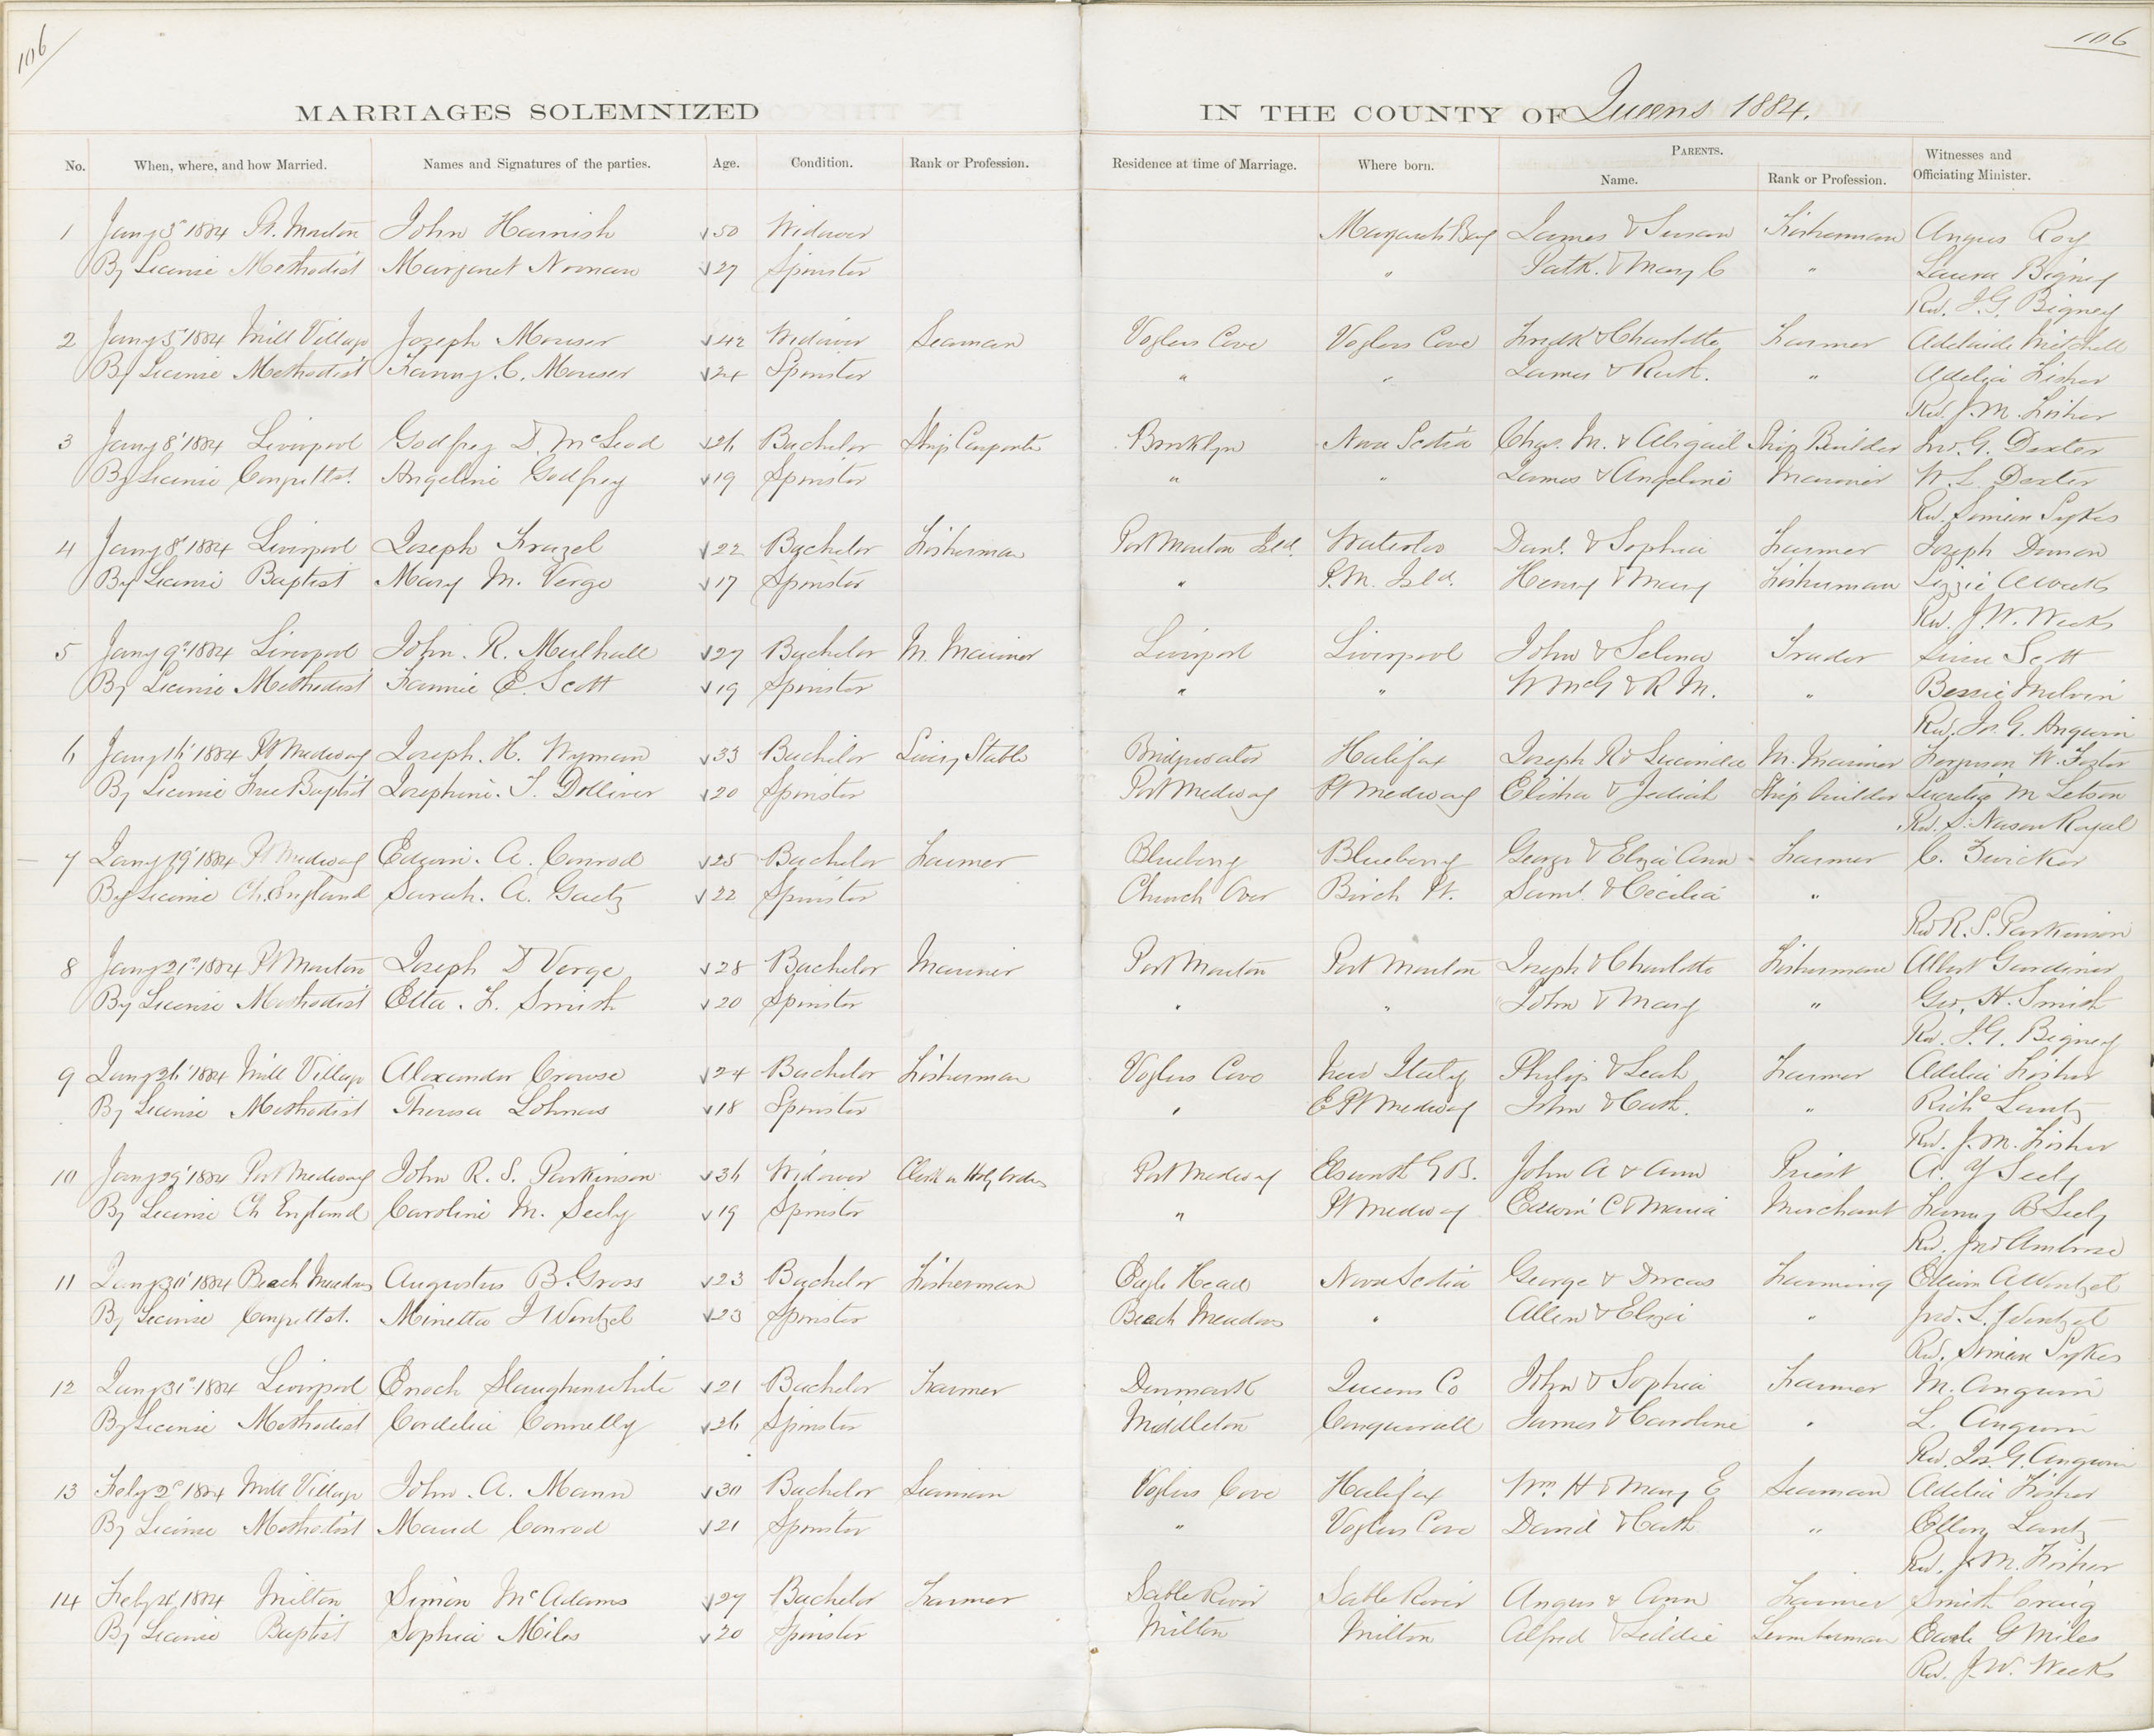 106
106
MARRIAGES SOLEMNIZED IN THE COUNTY OF Queens 1884.
No. When, where, and how Married. Names and Signatures of the parties. Age. Condition. Rank or Profession. Residence at time of Marriage. Where born. PARENTS. Name. Rank or Profession. Witnesses and Officiating Minister.
1 Jany 3 1884 Pt. Mouton John Harnish 50 Widower Margarets Bay James & Susan Fisherman Angus Roy
By License Methodist Margaret Noonan 27 Spinster " Patk. & Mary C " Laura Bigney
Rev. J. G. Bigney
2 Jany 5 1884 Mill Village Joseph Mouser 42 Widower Seaman Voglers Cove Voglers Cove Fredk & Charlotte Farmer Adelaide Mitchell
By License Methodist Fanny. C. Mouser 24 Spinster " " James & Ruth. " Adelia Fisher
Rev. J. M. Fisher
3 Jany 8 1884 Liverpool Godfrey D. McLeod 26 Bachelor Ship Carpenter Brooklyn Nova Scotia Chas. M. & Abigail Ship Builder Jno. G. Dexter
By License Congettst. Angeline Godfrey 19 Spinster " " James & Angeline Mariner W. L. Dexter
Rev. Simeon Sykes
4 Jany 8 1884 Liverpool Joseph Frazel 22 Bachelor Fisherman Port Mouton Isld. Waterloo Danl. & Sophia Farmer Joseph Doman
By License Baptist Mary M. Verge 17 Spinster " P.M. Isld. Henry & Mary Fisherman Lizzie A Weeks
Rev. J. W. Weeks
5 Jany 9 1884 Liverpool John. R. Mulhall 27 Bachelor M. Mariner Liverpool Liverpool John & Selena Trader Scott
By License Methodist Fannie E. Scott 19 Spinster " " W McG & R M. " Bessie Melvin
Rev. Js. G. Angwin
6 Jany 16 1884 Pt Medway Joseph. H. Wyman 33 Bachelor Livery Stable Bridgewater Halifax Joseph R & Lucinda M. Mariner Ferguson W. Foster
By License Free Baptist Josephine. T. Dolliver 20 Spinster Port Medway Pt Medway Elisha & Jediah Ship builder Lucretia M Letson
Rev. S. Nason Royal
7 Jany 19 1884 Pt Medway Edwin. A. Conrod 25 Bachelor Farmer Blueberry Blueberry George & Eliza Ann Farmer C. Zwicker
By License Ch. England Sarah. A. Gaetz 22 Spinster Church Over Birch Pt. Saml. & Cecilia "
Rev R. S. Parkinson
8 Jany 21 1884 Pt Mouton Joseph D Verge 28 Bachelor Mariner Port Mouton Port Mouton Joseph & Charlotte Fisherman Albert Gardiner
By License Methodist Etta. F. Smith 20 Spinster " " John & Mary " Geo. H. Smith
Rev. J. G. Bigney
9 Jany 26 1884 Mill Village Alexander Crouse 24 Bachelor Fisherman Voglers Cove New Italy Philip & Leah Farmer Adelia Fisher
By License Methodist Theresa Lohnas 18 Spinster " E Pt Medway John & Cath. " Richd Lantz
Rev. J. M. Fisher
10 Jany 29 1884 Port Medway John R. S. Parkinson 36 Widower Clerk in Holy Orders Port Medway Elsworth G B. John A & Ann Priest A. Y Seely
By License Ch England Caroline M. Seely 19 Spinster " Pt Medway Edwin C & Maria Merchant Fanny B Seely
Rev. Jno Ambrose
11 Jany 30 1884 Beach Meadows Augustus B. Gross 23 Bachelor Fisherman Eagle Head Nova Scotia George & Dorcas Farming Edwin A Wentzel
By License Congettst. Minetta J Wentzel 23 Spinster Beach Meadows " Allen & Eliza " Jno. S. Wentzel
Rev. Simeon Sykes
12 Jany 31 1884 Liverpool Enoch Slaughenwhite 21 Bachelor Farmer Denmark Queens Co John & Sophia Farmer M. Angwin
By License Methodist Cordelia Connelly 26 Spinster Middleton Conquerall James & Caroline " L. Angwin
Rev. Jos. G. Angwin
13 Feby 2 1884 Mill Village John. A. Mann 30 Bachelor Seaman Voglers Cove Halifax Wm. H & Mary E Seaman Adelia Fisher
By License Methodist Maud Conrod 21 Spinster " Voglers Cove David & Cath " Ellen Lantz
Rev. J. M. Fisher
14 Feby 4 1884 Milton Simeon McAdams 27 Bachelor Farmer Sable River Sable River Angus & Ann Farmer Smith Craig
By License Baptist Sophia Miles 20 Spinster Milton Milton Alfred & Liddie Lumberman G Miles
Rev. J. W. Weeks